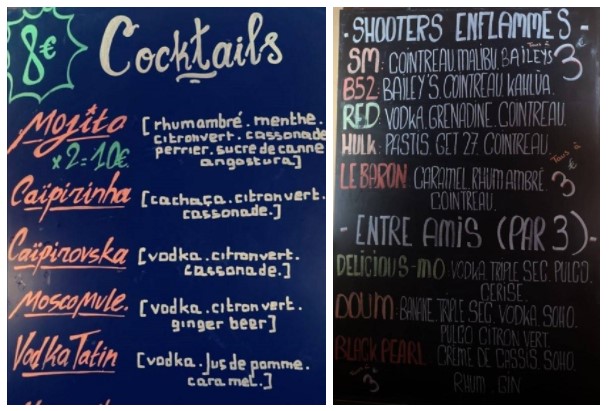 8€ Cocktails
Mojito [rhum ambré. menthe.
citron vert. cassonade
x2=10€ perrier. sucre de canne
angostura]
Caïpirinha [cachaça. citron vert.
cassonade.]
Caïpirovska [vodka. citron vert.
cassonade.]
Moscomule. [vodka. citron vert.
ginger beer]
Vodka Tatin [vodka. jus de pomme.
caramel.]
- SHOOTERS ENFLAMMÉS -
SM: COINTREAU. MALIBU. BAILEYS
Tous à 3€
B52: BAILEY'S. COINTREAU. KAHLUA.
RED: VODKA. GRENADINE. COINTREAU.
HULK: PASTIS. GET 27. COINTREAU.
Tous à 3€
LE BARON: CARAMEL. RHUM AMBRÉ.
COINTREAU.
- ENTRE AMIS (PAR 3) -
DELICIOUS-MO: VODKA. TRIPLE SEC. PULCO.
CERISE.
DOUM: BANANE. TRIPLE SEC. VODKA. SOHO.
PULCO CITRON VERT.
BLACK PEARL: CRÈME DE CASSIS. SOHO.
3 RHUM. GIN